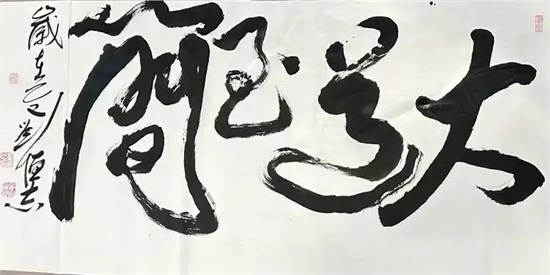 大道至簡
歲在乙巳劉